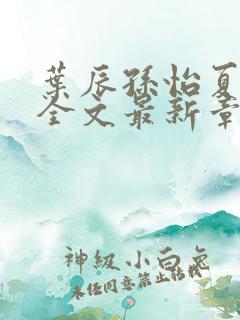 葉辰孫怡夏
全文最新章
神級小白兔
未經同意禁止轉載